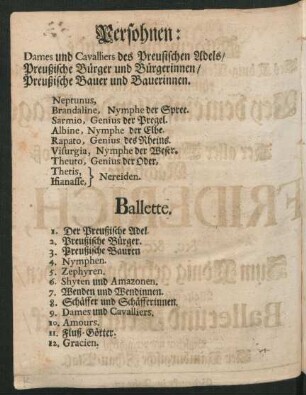 Persohnen:
Dames und Cavalliers des Preusischen Adels/
Preußische Bürger und Bürgerinnen/
Preußische Bauer und Bauerinnen.
Neptunus,
Brandaline, Nymphe der Spree.
Sarmio, Genius der Pregel.
Albine, Nymphe der Elbe.
Rapato, Genius des Rheins.
Visurgia, Nymphe der Weser.
Theuto, Genius der Oder,
Thetis,
Ifianasse. } Nereiden.
Ballette.
1. Der Preußische Adel.
2. Preußische Bürger.
3. Preußische Bauren
4. Nymphen.
5. Zephyren.
6. Shyten und Amazonen.
7. Wenden und Wendinnen.
8. Schäffer und Schäfferinnen.
9. Dames und Cavalliers.
10. Amours.
11. Fluß-Götter.
12. Gracien.